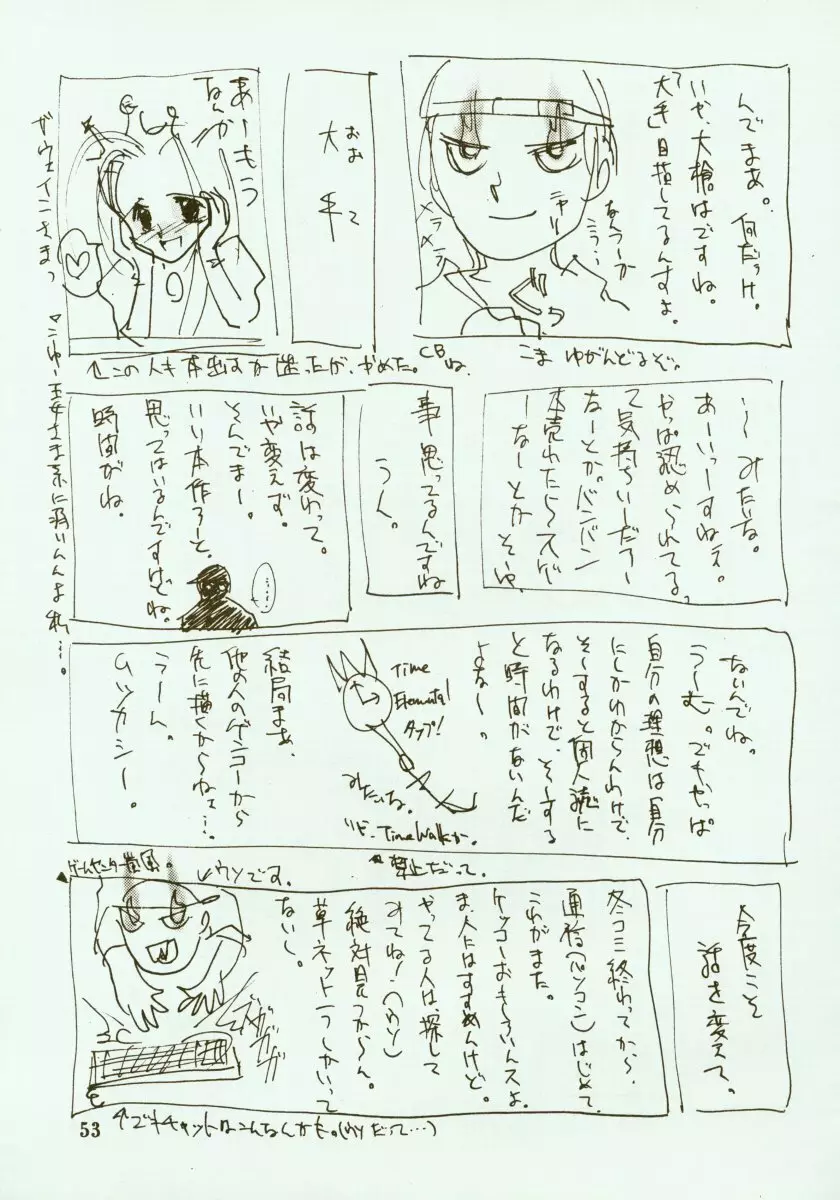 んでまあ。何だっけ。
いや、大槍はですね。
「大手」目指してるんすよ。
なんつーか
こう…
ニヤリ
メラ
メラ
こまゆがんどるぞ。
おおて
大手
あーもう
なんかー
ガウェインさまっ
↑この人も本出すか迷ったが、やめた。CBね。
〜みたいな。
あーいっすねえ。
やっぱ認められてる。
て気持ちいーだろー
なーとか。バンバン
本売れたらスゲ
ーなーとかそーゆ
事思ってるんですね
うん。
話は変わって。
いや変えず。
そんでまー。
いい本作ろーと。
思ってはいるんですけどね。
時間がね。
ないんでね。
うーむ。でもやっぱ
自分の理想は自分
にしかわからんわけで、
そーすると個人誌に
なるわけで、そーする
と時間がないんだ
よなー。
Time
Elemental
タップ!
みたいな。
Time Walkか。
禁止だって。
結局まあ、
他の人のゲンコーから
先に描くからねェ…。
うーん。
ムツカシー。
今度こそ
話を変えて。
冬コミ終わってから、
通信(パソコン)はじめて
これがまた。
ケッコーおもしろいんスよ。
ま、人にはすすめんけど。
やってる人は探して
みてね!(ウソ)
絶対見つからん。
草ネット一つしかいって
ないし。
ゲームセンター嵐風。
↙ウソです。
ガガガガ
53
↑でもチャットはこんなんかも。(ウソだって…)